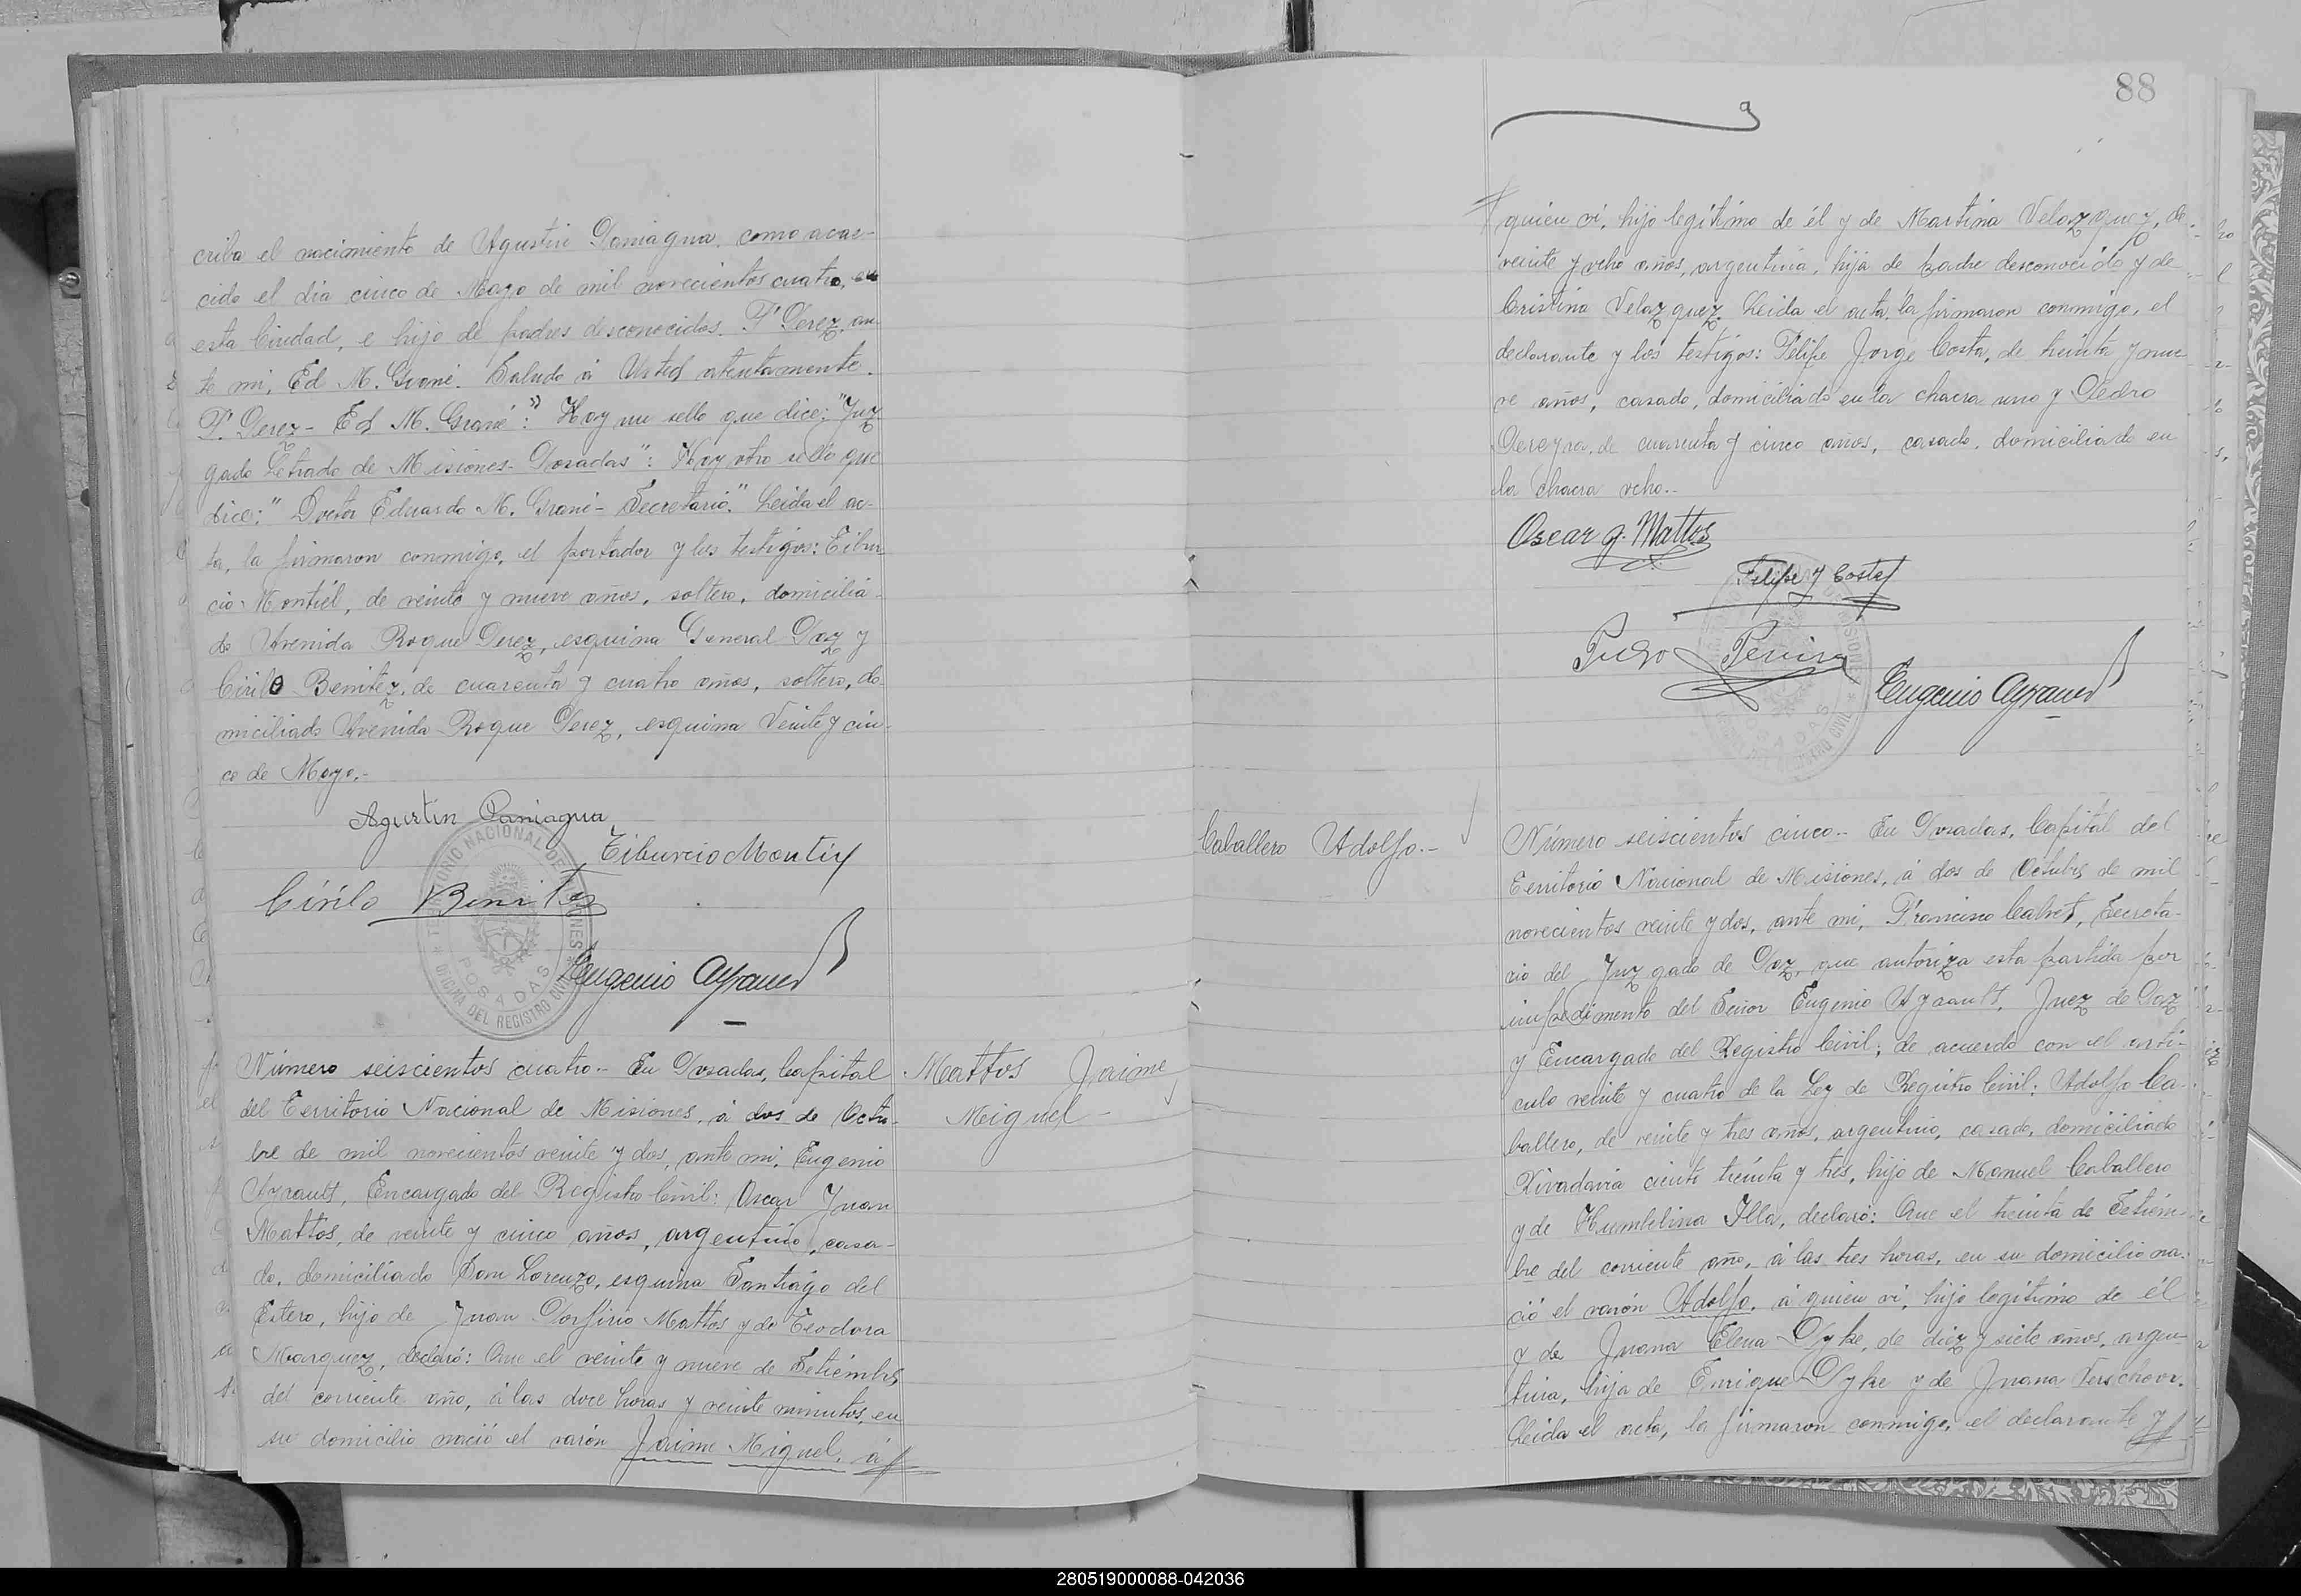 criba el nacimiento de Agustin Paniagua, como acae-
cido el dia cinco de Mayo de mil novecientos cuatro, en
esta Ciudad, e hijo de padres desconocidos. F. Perez, an-
te mi, Ed M. Grané. Saludo á Usted atentamente.
F. Perez - Ed M. Grané": "Hay un sello que dice: "Juz
gado Letrado de Misiones - Posadas": Hay otro sello que
dice: "Doctor Eduardo M. Grané - Secretario." Leida el ac-
ta, la firmaron conmigo, el portador y los testigos: Tibur
cio Montiel, de veinte y nueve años, soltero, domicilia-
do Avenida Roque Perez, esquina General Paz y
Cirilo Benitez, de cuarenta y cuatro años, soltero, do-
miciliado Avenida Roque Perez, esquina Veinte y cin-
co de Mayo.-
Agustin Paniagua
Tiburcio Montiel
Cirilo Benitez
TERRITORIO NACIONAL DE MISIONES
POSADAS
OFICINA DEL REGISTRO CIVIL
Eugenio Ayrault
Mattos Jaime
Miguel -
Número seiscientos cuatro.- En Posadas, Capital
del Territorio Nacional de Misiones, á dos de Octu-
bre de mil novecientos veinte y dos, ante mi, Eugenio
Ayrault, Encargado del Registro Civil: Oscar Juan
Mattos, de veinte y cinco años, argentino, casa-
do, domiciliado San Lorenzo, esquina Santiago del
Estero, hijo de Juan Porfirio Mattos y de Teodora
Marquez, declaró: Que el veinte y nueve de Setiembre
del corriente año, á las doce horas y veinte minutos, en
su domicilio nació el varón Jaime Miguel, á
88
quien vi, hijo legítimo de él y de Martina Velazquez, de
veinte y ocho años, argentina, hija de padre desconocido y de
Cristina Velazquez. Leida el acta, la firmaron conmigo, el
declarante y los testigos: Felipe Jorge Costa, de treinta y nue
ve años, casado, domiciliado en la chacra uno y Pedro
Pereyra, de cuarenta y cinco años, casado, domiciliado en
la chacra ocho.-
Oscar J. Mattos
Felipe J Costa
Pedro Pereira
Eugenio Ayrault
Caballero Adolfo.-
Número seiscientos cinco.- En Posadas, Capital del
Territorio Nacional de Misiones, á dos de Octubre de mil
novecientos veinte y dos, ante mi, Francisco Calvet, Secreta-
rio del Juzgado de Paz, que autoriza esta partida por
impedimento del Señor Eugenio Ayrault, Juez de Paz
y Encargado del Registro Civil; de acuerdo con el artí-
culo veinte y cuatro de la Ley de Registro Civil: Adolfo Ca-
ballero, de veinte y tres años, argentino, casado, domiciliado
Rivadavia ciento treinta y tres, hijo de Manuel Caballero
y de Humbelina Illa, declaró: Que el treinta de Setiem-
bre del corriente año, á las tres horas, en su domicilio na-
ció el varón Adolfo, á quien vi, hijo legítimo de él
y de Juana Elena Dyke, de diez y siete años, argen-
tina, hija de Enrique Dyke y de Juana Verschoor.
Leida el acta, la firmaron conmigo, el declarante y
280519000088-042036